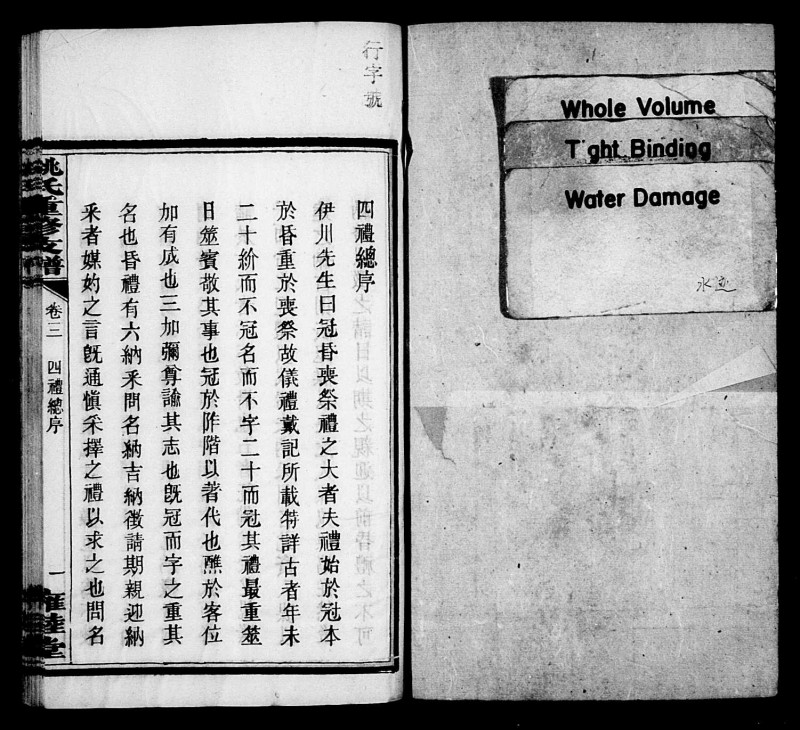 Whole Volume
Tight Binding
Water Damage
水迹
行字號
四禮總序
伊川先生曰冠昏喪祭禮之大者夫禮始於冠本
於昏重於喪祭故儀禮戴記所載特詳古者年未
二十紒而不冠名而不字二十而冠其禮最重筮
日筮賓敬其事也冠於阼階以著代也醮於客位
加有成也三加彌尊諭其志也旣冠而字之重其
名也昏禮有六納釆問名納吉納徵請期親迎納
釆者媒妁之言旣通愼釆擇之禮以求之也問名
姚氏重修支譜
卷三
四禮總序
一
雍睦堂